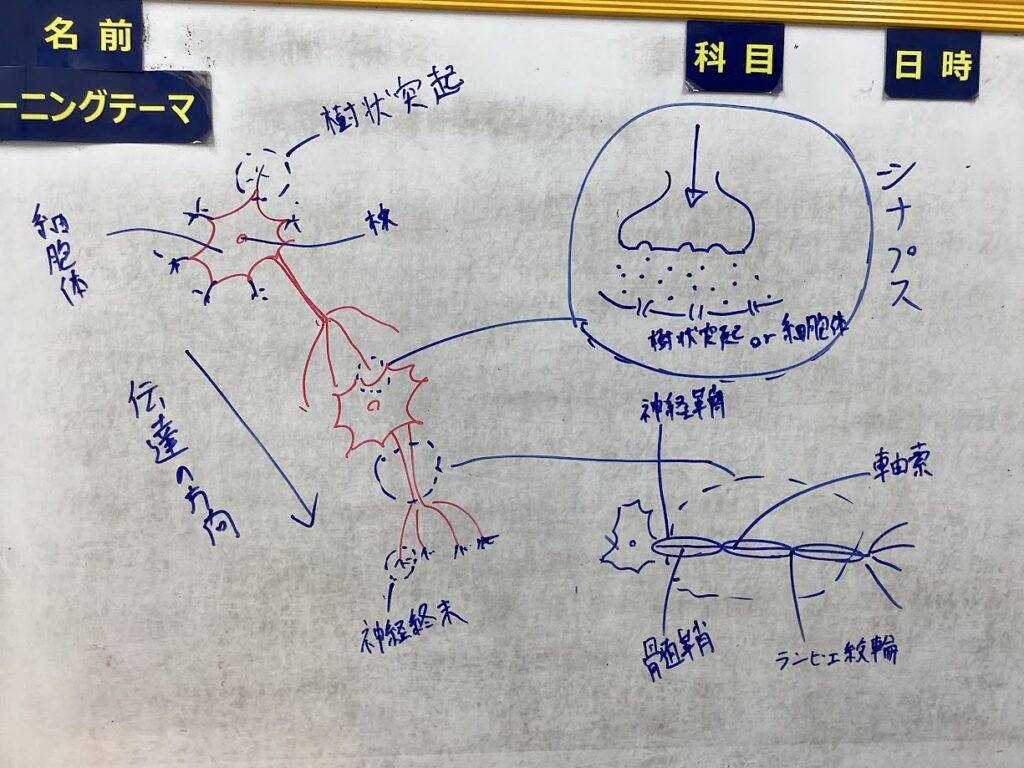 名前
科目
日時
ーニングテーマ
樹状突起
細胞体
核
シナプス
樹状突起 or 細胞体
伝達の方向
神経鞘
軸索
神経終末
髄鞘
ランビエ絞輪